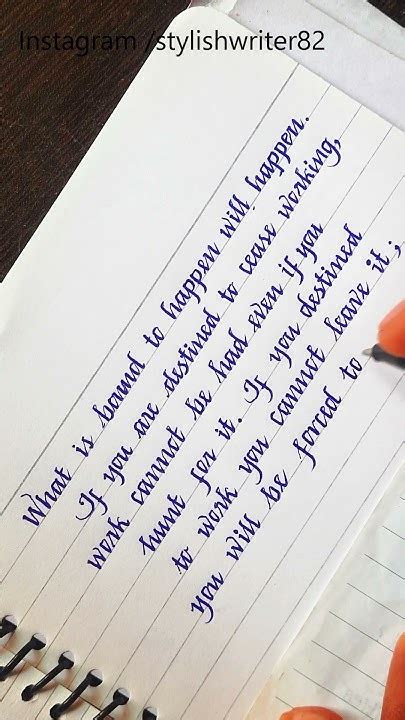 Instagram /stylishwriter82
What is bound to happen will happen.
If you are destined to cease working,
work cannot be had even if you
hunt for it. If you destined
to work you cannot leave it;
you will be forced to